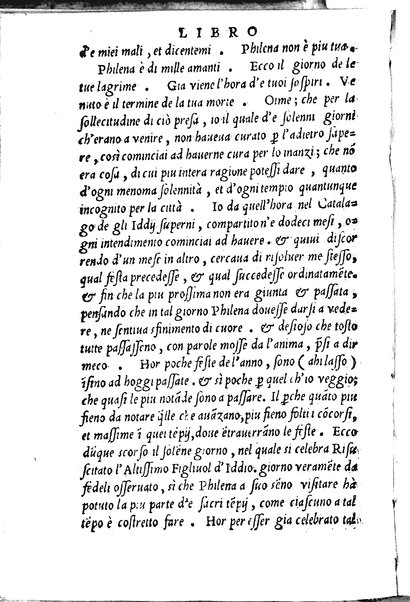 LIBRO
de miei mali, et dicentemi. Philena non è piu tua.
Philena è di mille amanti. Ecco il giorno de le
tue lagrime. Gia viene l'hora d'e tuoi sospiri. Ve
nuto è il termine de la tua morte. Oime; che per la
sollecitudine di ciò presa, io il quale d'e solenni giorni
ch'erano a venire, non haueua curato ꝑ l'adietro sape=
re, così cominciai ad hauerne cura per lo inanzi; che nō
era cosa, di cui piu intera ragione potessi dare, quanto
d'ogni menoma solennità, et d'ogni tempio quantunque
incognito per la città. Io da quell'hora nel Catalo=
go de gli Iddij superni, compartito n'e dodeci mesi, o=
gni intendimento cominciai ad hauere. & quiui discor
rendo d'un mese in altro, cercaua di risoluer me stesso,
qual festa precedesse, & qual succedesse ordinatamēte.
& fin che la piu prossima non era giunta & passata,
pensando che in tal giorno Philena douesse darsi a vede=
re, ne sentiua sfinimento di cuore. & desioso che tosto
tutte passasseno, con parole mosse da l'anima, ꝑsi a dir
meco. Hor poche feste de l'anno, sono (ahi lasso)
īsino ad hoggi passate. & sì poche ꝑ quel ch'io veggio;
che quasi le piu notāde sono a passare. Il ꝑche quāto piu
fieno da notare q̄lle che auāzano, piu fieno folti i cōcorsi,
et massime ī quei tēpij, doue ētrauerrāno le feste. Ecco
dūque scorso il solēne giorno, nel quale si celebra Risu=
scitato l'Altissimo Figliuol d'Iddio. giorno veramēte da
fedeli osseruato, sì che Philena a suo sēno visitare hà
potuto la piu parte d'e sacri tēpij, come ciascuno a tal
tēpo è costretto fare. Hor per esser gia celebrato tal